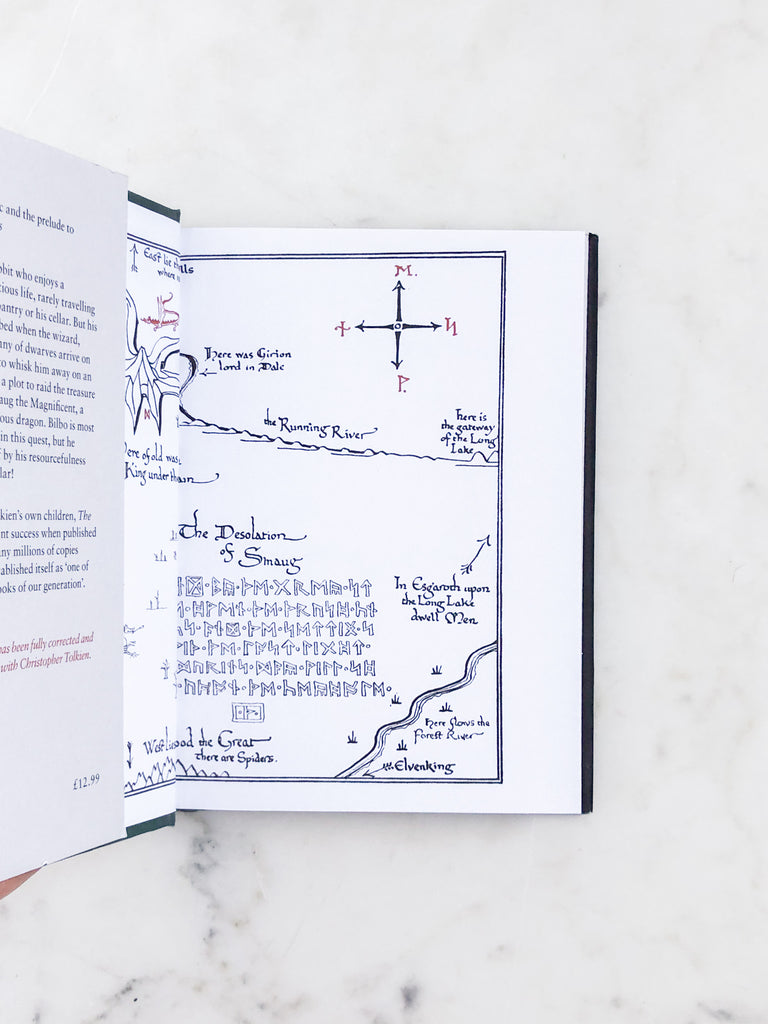 c and the prelude to
bbit who enjoys a
rarely travelling
pantry or his cellar. But his
when the wizard,
of dwarves arrive on
to whisk him away on an
a plot to raid the treasure
the Magnificent, a
dragon. Bilbo is most
in this quest, but he
by his resourcefulness
kien's own children, The
success when published
millions of copies
itself as 'one of
of our generation'.
has been fully corrected and
with Christopher Tolkien.
£12.99
East lie
where
There was Girion
lord in Dale
the Running River
here is
the gateway
of the Long
Lake
ᛗ.
ᚾ
ᛋ
ᚹ.
of old was
King under
The Desolation
of Smaug
ᛞ·ᛒᚣ·ᚦᛖ·ᚷᚱᛖᚣ·ᛋᛏ
ᚻᚹᛖᚾ·ᚦᛖ·ᚦᚱᚢᛋᚻ·ᚾᚩ
ᛋ·ᚪᚾᛞ·ᚦᛖ·ᛋᛖᛏᛏᛁᚾᚷ·ᛋ
ᚦ·ᚦᛖ·ᛚᚪᛋᛏ·ᛚᛁᚷᚻᛏ·
ᛞᚢᚱᛁᚾᛋ·ᛞᚪᚣ·ᚹᛁᛚᛚ·ᛋᚻ
ᚢᛈᚩᚾ·ᚦᛖ·ᚳᛖᚣᚻᚩᛚᛖ·
In Esgaroth upon
the Long Lake
dwell Men
here flows the
Forest River
Elvenking
West the Great
there are Spiders.